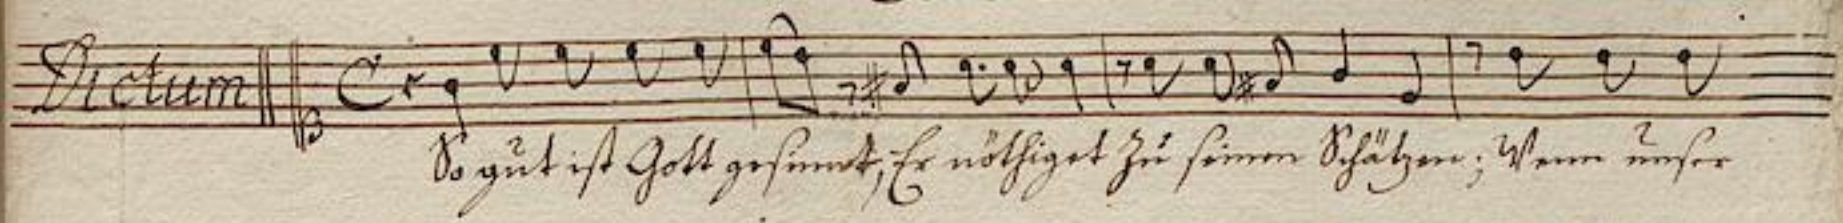 Dictum
So gut ist Gott gesinnt, Er nöthiget zu seinen Schätzen; Wenn unser